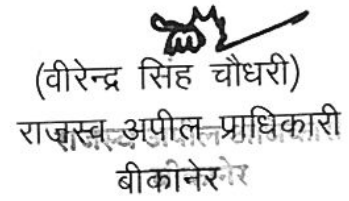 (वीरेन्द्र सिंह चौधरी)
राजस्व अपील प्राधिकारी
बीकानेर